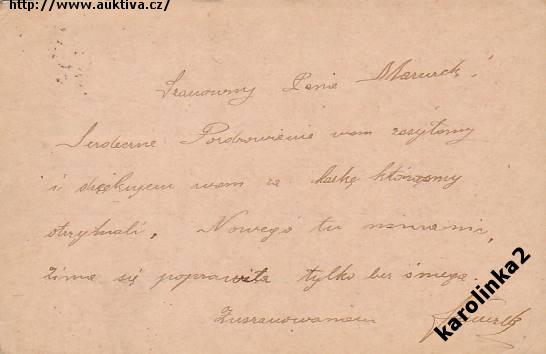 http://www.auktiva.cz/
Szanowny Panie Mazurek!
Serdeczne Pozdrowienie wam zasyłamy
i dziękujem wam za kartkę którąśmy
otrzymali. Nowego tu nic niema,
zima się poprawiła tylko bez śniegu.
Z uszanowaniem
karolinka2